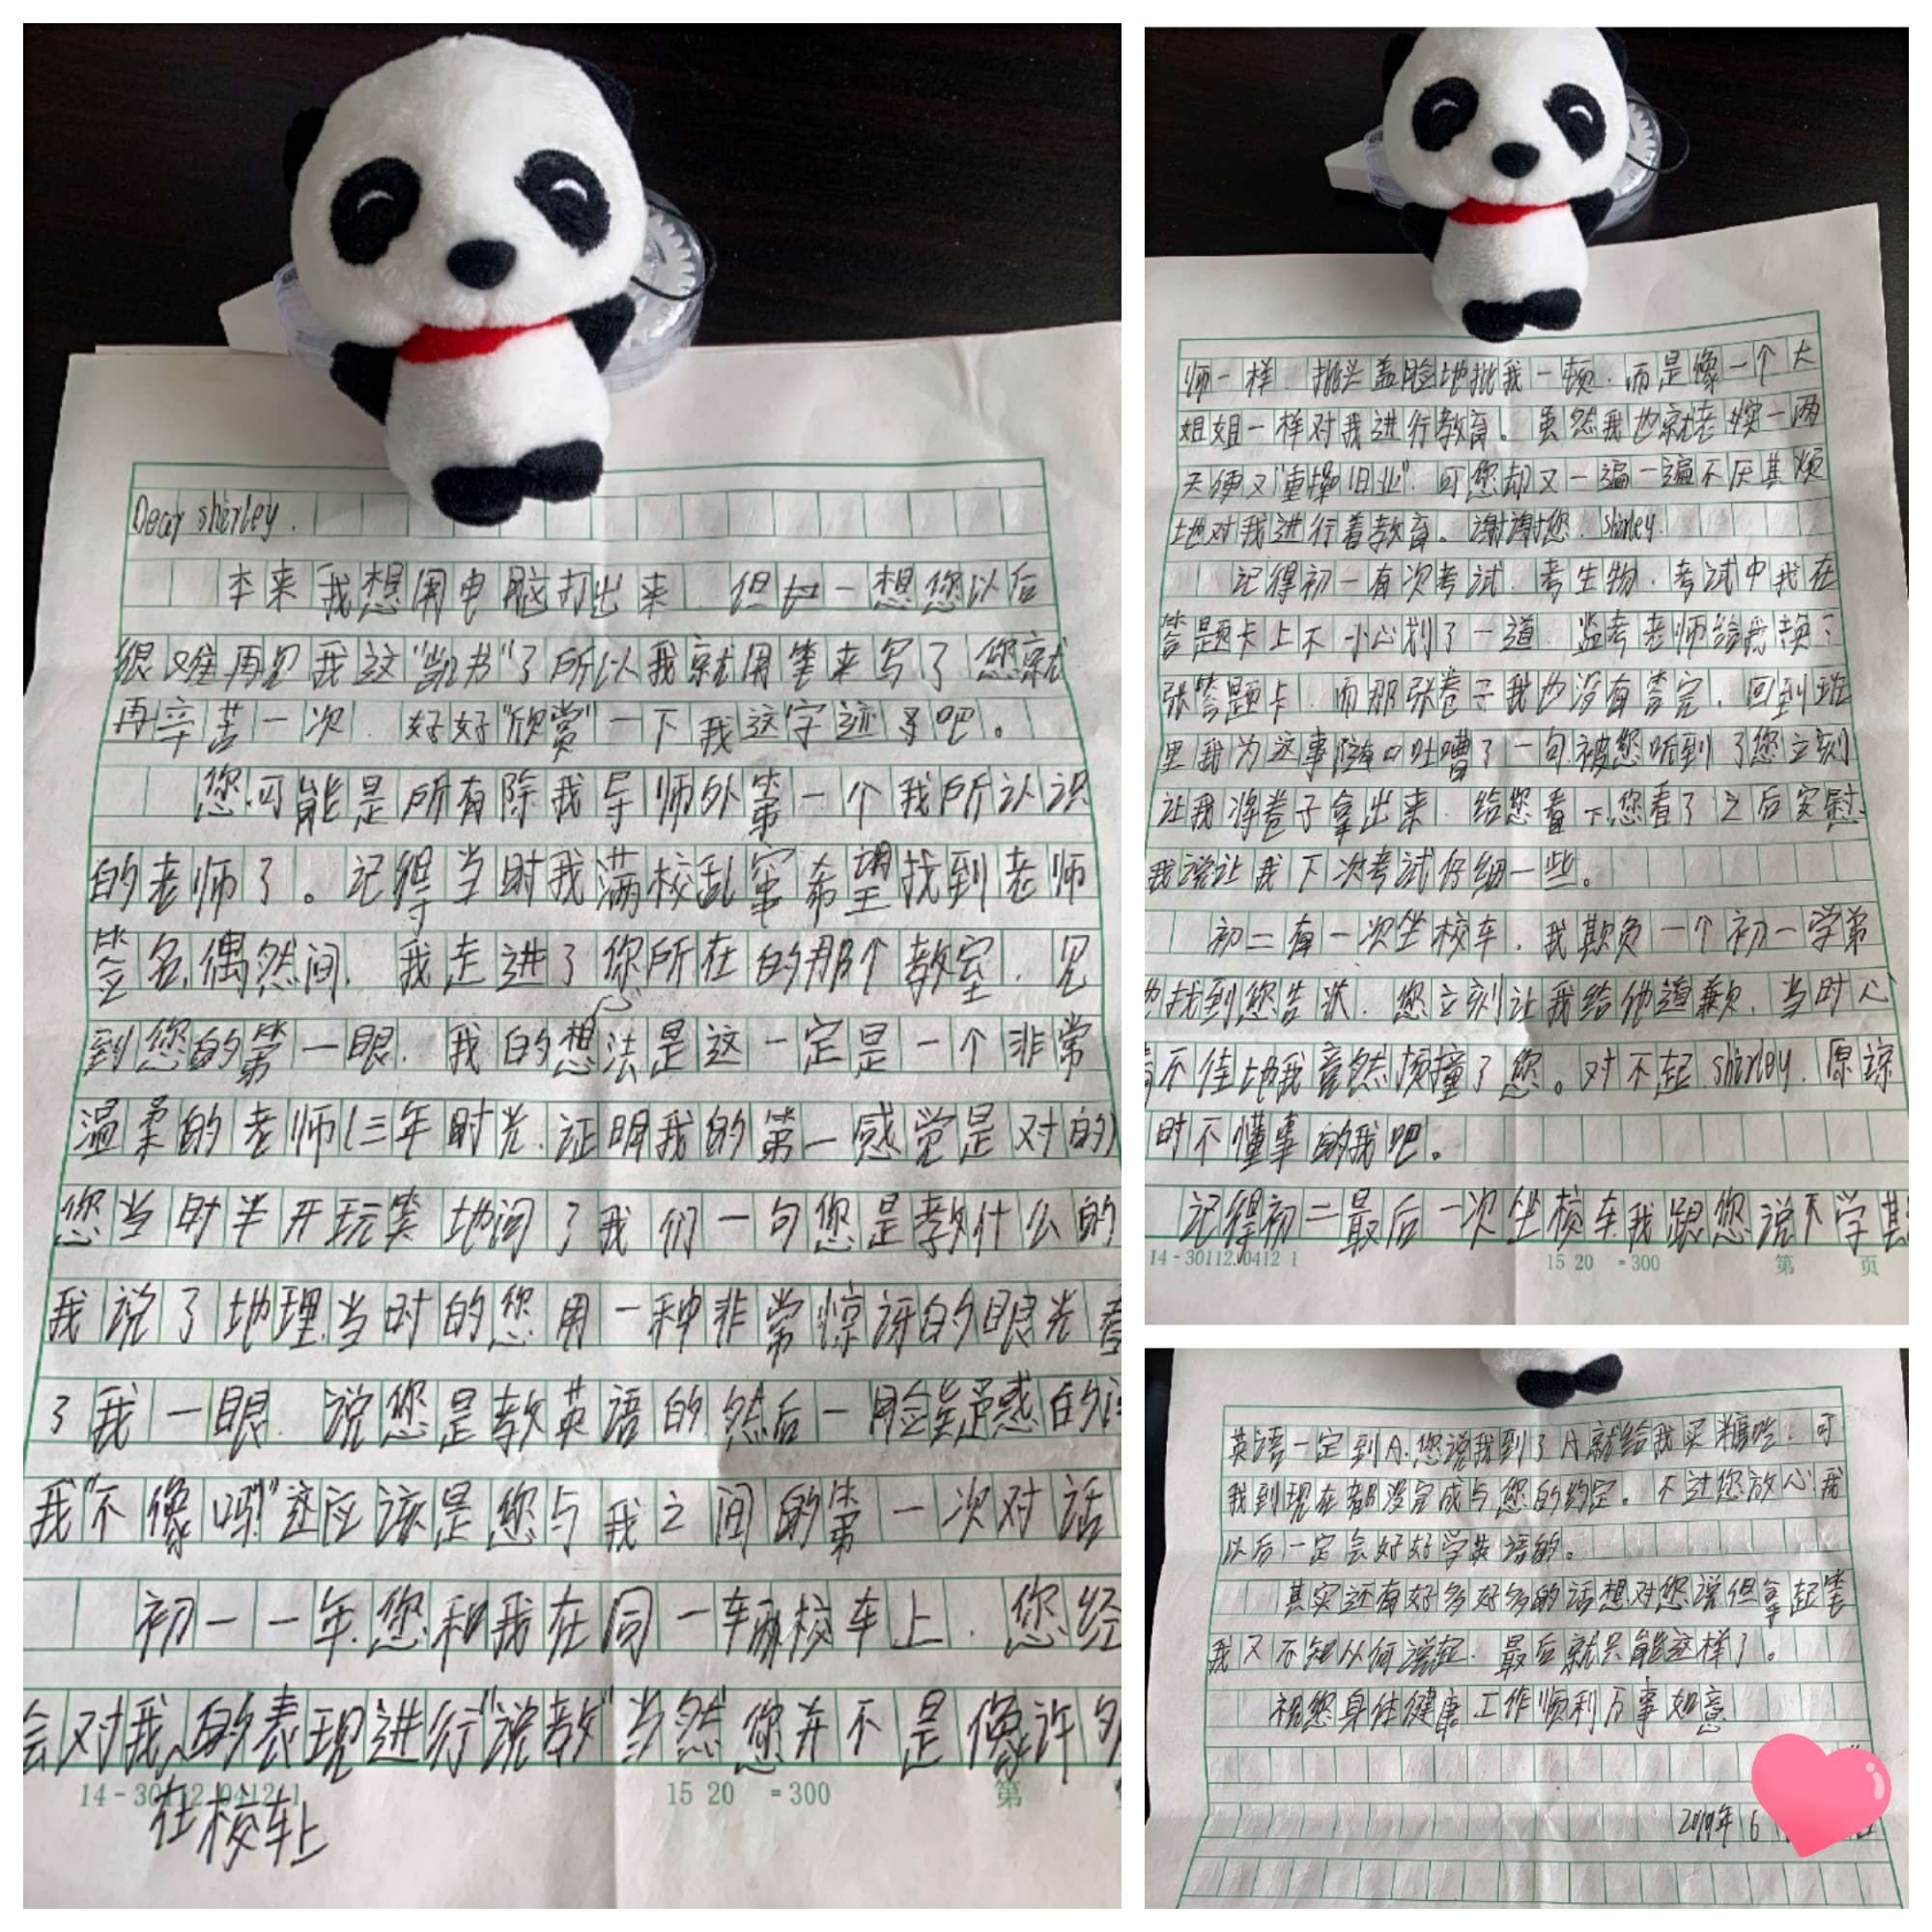 Dear shirley.
本来我想用电脑打出来 但一想您以后
很难再见我这"凯书"了所以我就用笔来写了您就
再辛苦一次.好好"欣赏"一下我这字迹吧。
您可能是所有除我导师外第一个我所认识
的老师了。记得当时我满校乱窜希望找到老师
签名,偶然间,我走进了你所在的那个教室.见
到您的第一眼.我的想法是这一定是一个非常
温柔的老师(三年时光.证明我的第一感觉是对的)
您当时半开玩笑地问了我们一句您是教什么的
我说了地理.当时的您用一种非常惊讶的眼光看
了我一眼.说您是教英语的.然后一脸疑惑的
我"不像吗!"这应该是您与我之间的第一次对话
初一一年.您和我在同一车辆校车上.您经
会对我的表现进行"说教"当然您并不是像许多
在校车上
14-30112.0412 1 15 20 =300 第
师一样.批头盖脸地批我一顿.而是像一个大
姐姐一样对我进行教育。虽然我也就老实一两
天便又"重操旧业".可您却又一遍一遍不厌其烦
地对我进行着教育。谢谢您.shirley.
记得初一有次考试.考生物.考试中我在
答题卡上不小心划了一道.监考老师给我换了
张答题卡.而那张卷子我也没有答完.回到班
里我为这事随口吐嘈了一句.被您听到了您立刻
让我将卷子拿出来.给您看下.您看了之后安慰
我说让我下次考试仔细一些。
初二有一次坐校车.我欺负一个初一学弟
他找到您告状.您立刻让我给他道歉.当时心
情不佳地我竟然顶撞了您。对不起.shirley.原谅
时不懂事的我吧。
记得初二最后一次坐校车我跟您说下学期
14-30112.0412 1 15 20 =300 第 页
英语一定到A.您说我到了A就给我买糖吃.可
我到现在都没完成与您的约定。不过您放心.我
以后一定会好好学英语的。
其实还有好多好多的话想对您说但拿起笔
我又不知从何说起.最后就只能这样了。
祝您身体健康工作顺利万事如意
2019年6